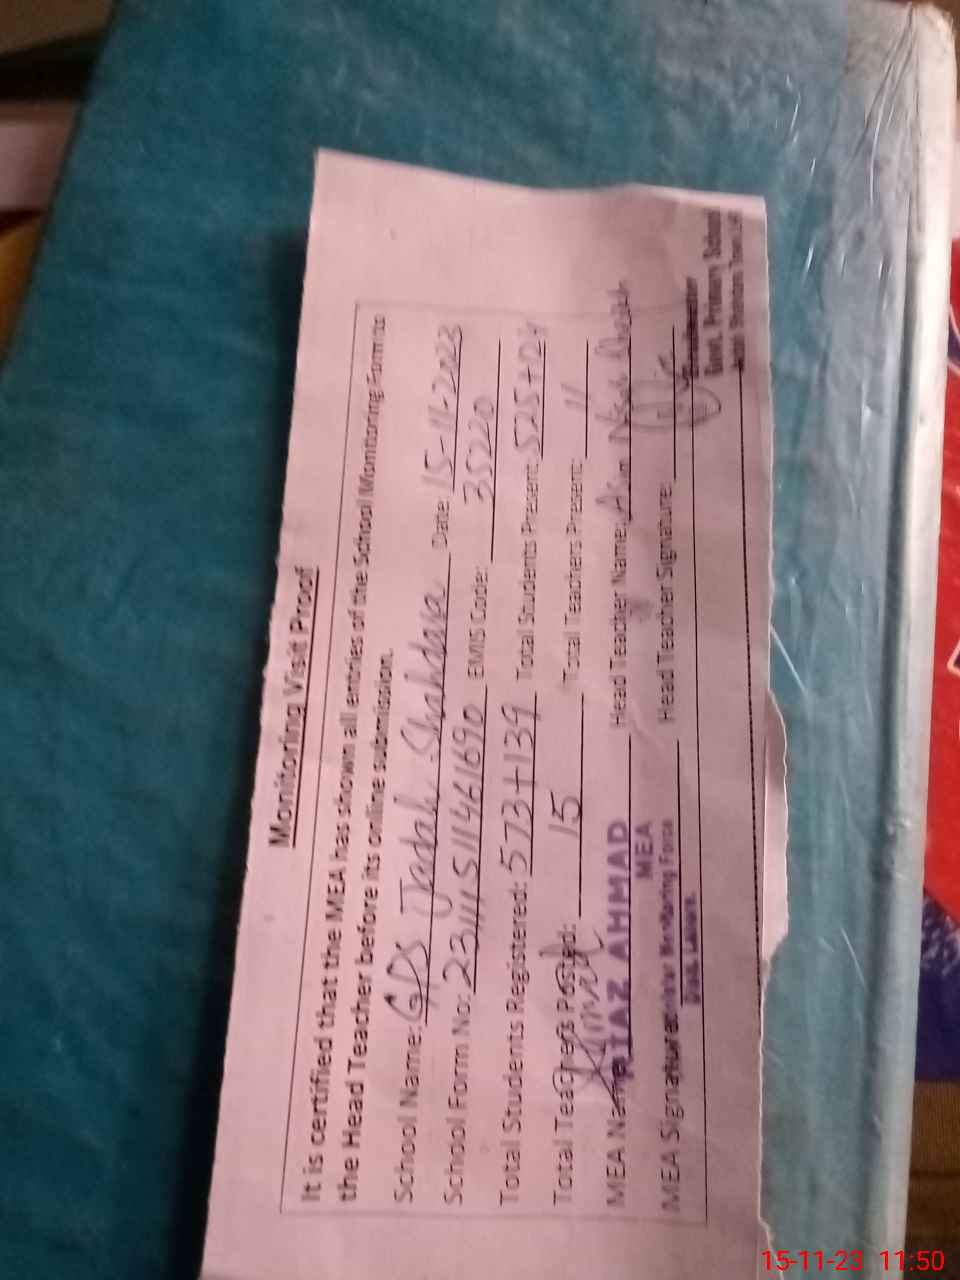 Monitoring Visit Proof
It is certified that the MEA has shown all entries of the School Monitoring Form to
the Head Teacher before its online submission.
School Name: GPS Jadah Shahdara Date: 15-11-2023
School Form No: EMIS Code: 35220
Total Students Registered: 573+139 Total Students Present: 525+124
Total Teachers Posted: 15 Total Teachers Present: 11
MEA Name RIAZ AHMAD Head Teacher Name:
MEA
MEA Signature Monitoring Force Head Teacher Signature:
Distt. Lahore.
Govt. Primary School
15-11-23 11:50